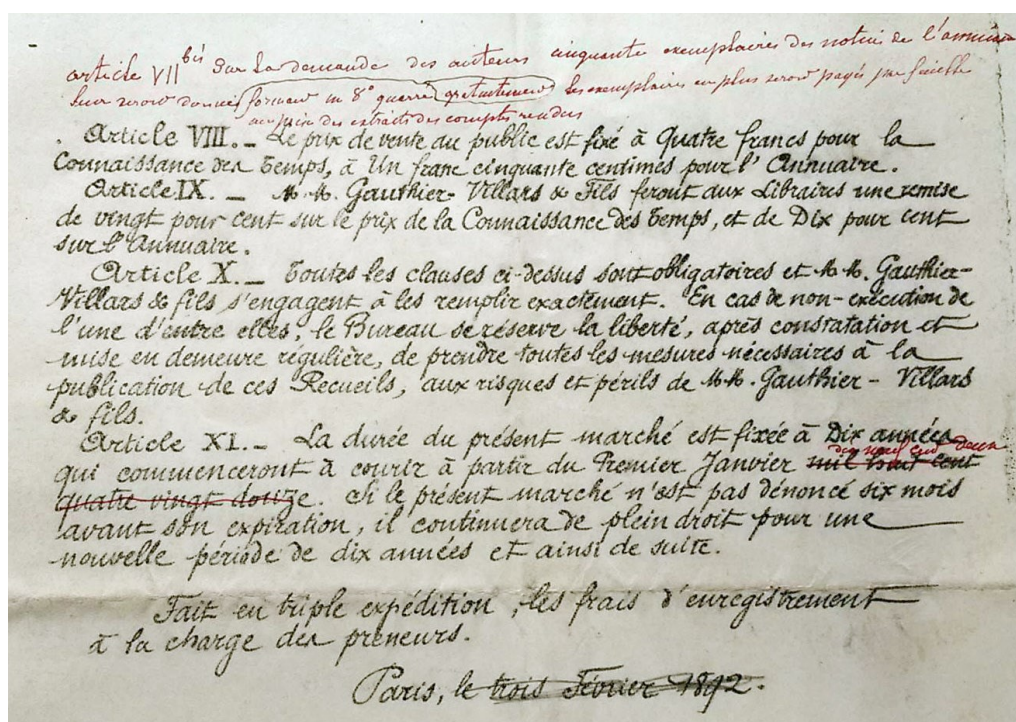 article VII bis Sur la demande des auteurs cinquante exemplaires des notices de l'annuaire
leur seront donnés format in 8° gratuitement les exemplaires en plus seront payés par
au prix des extraits des comptes rendus
Article VIII. – Le prix de vente au public est fixé à Quatre francs pour la
Connaissance des Temps, à Un franc cinquante centimes pour l'Annuaire.
Article IX. – M.M. Gauthier-Villars & Fils feront aux Libraires une remise
de vingt pour cent sur le prix de la Connaissance des Temps, et de Dix pour cent
sur l'Annuaire.
Article X. – Toutes les clauses ci-dessus sont obligatoires et M.M. Gauthier-
Villars & fils s'engagent à les remplir exactement. En cas de non-exécution de
l'une d'entre elles, le Bureau se réserve la liberté, après constatation et
mise en demeure régulière, de prendre toutes les mesures nécessaires à la
publication de ces Recueils, aux risques et périls de M.M. Gauthier-Villars
& fils.
Article XI. – La durée du présent marché est fixée à Dix années
dix neuf cent deux
qui commenceront à courir à partir du Premier Janvier mil huit cent
quatre vingt douze. Si le présent marché n'est pas dénoncé six mois
avant son expiration, il continuera de plein droit pour une
nouvelle période de dix années et ainsi de suite.
Fait en triple expédition, les frais d'enregistrement
à la charge des preneurs.
Paris, le trois Février 1892.